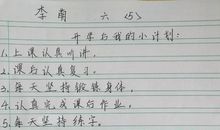 李萌 六〈5〉
开学后我的小计划:
1.上课认真听讲,
2.课后认真复习。
3.每天坚持锻炼身体,
4.认真完成课后作业,
5.每天坚持练字。